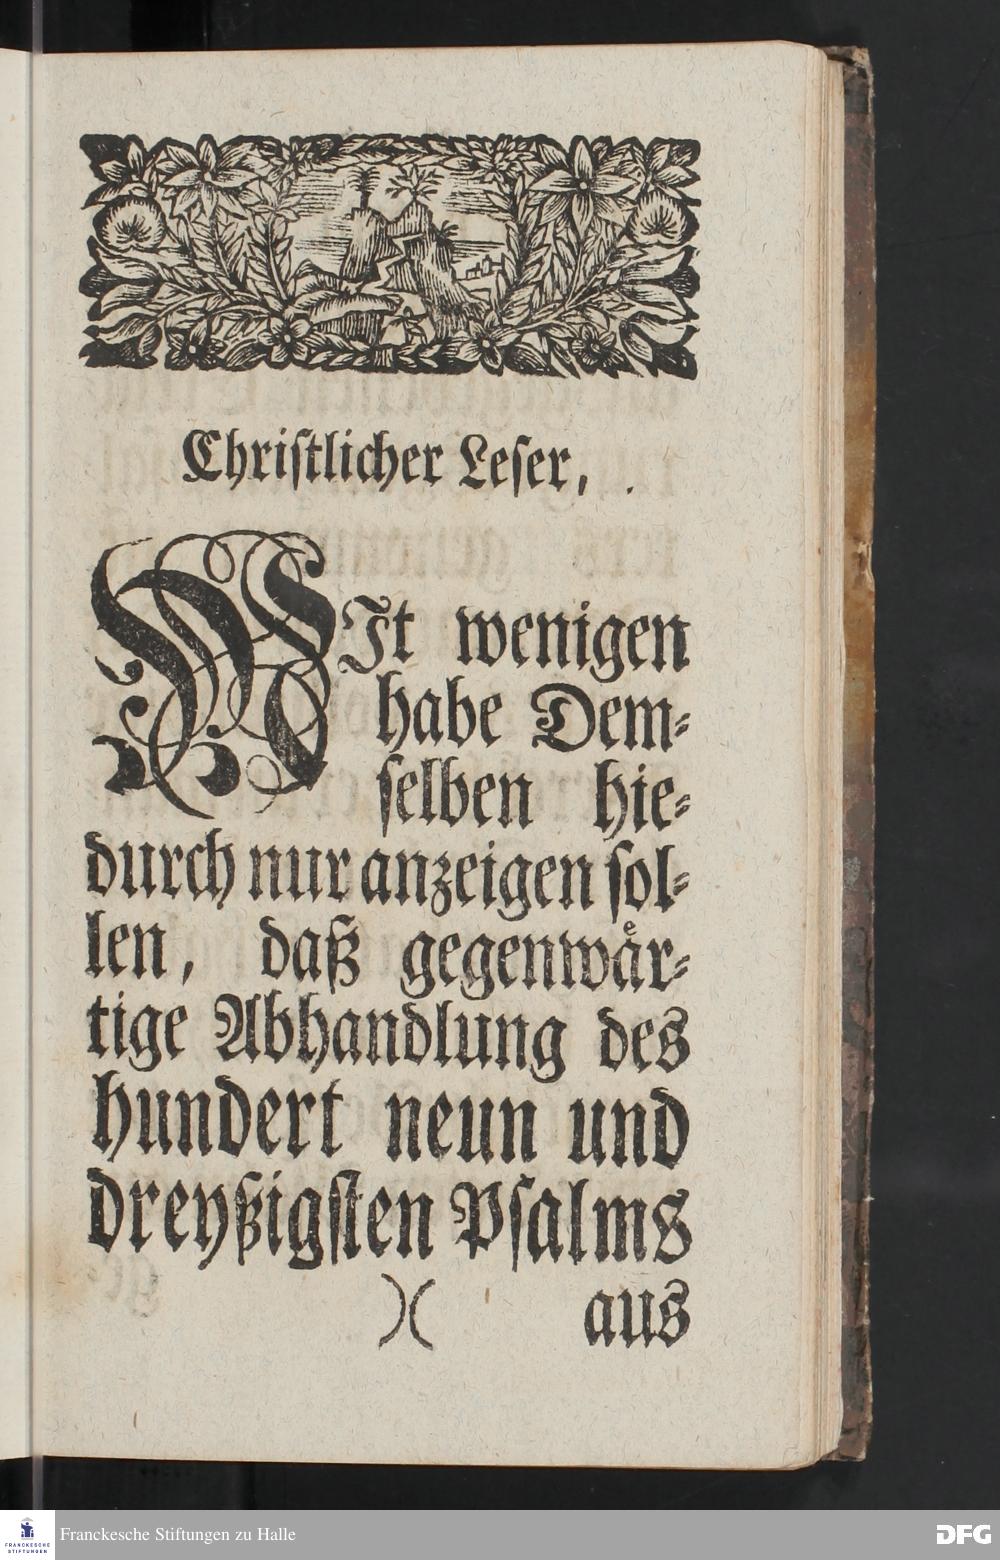 Christlicher Leser,
MIt wenigen
habe Dem-
selben hie-
durch nur anzeigen sol-
len, daß gegenwår-
tige Abhandlung des
hundert neun und
dreyßigsten Psalms
)( aus
FRANCKESCHE
STIFTUNGEN
Franckesche Stiftungen zu Halle
DFG